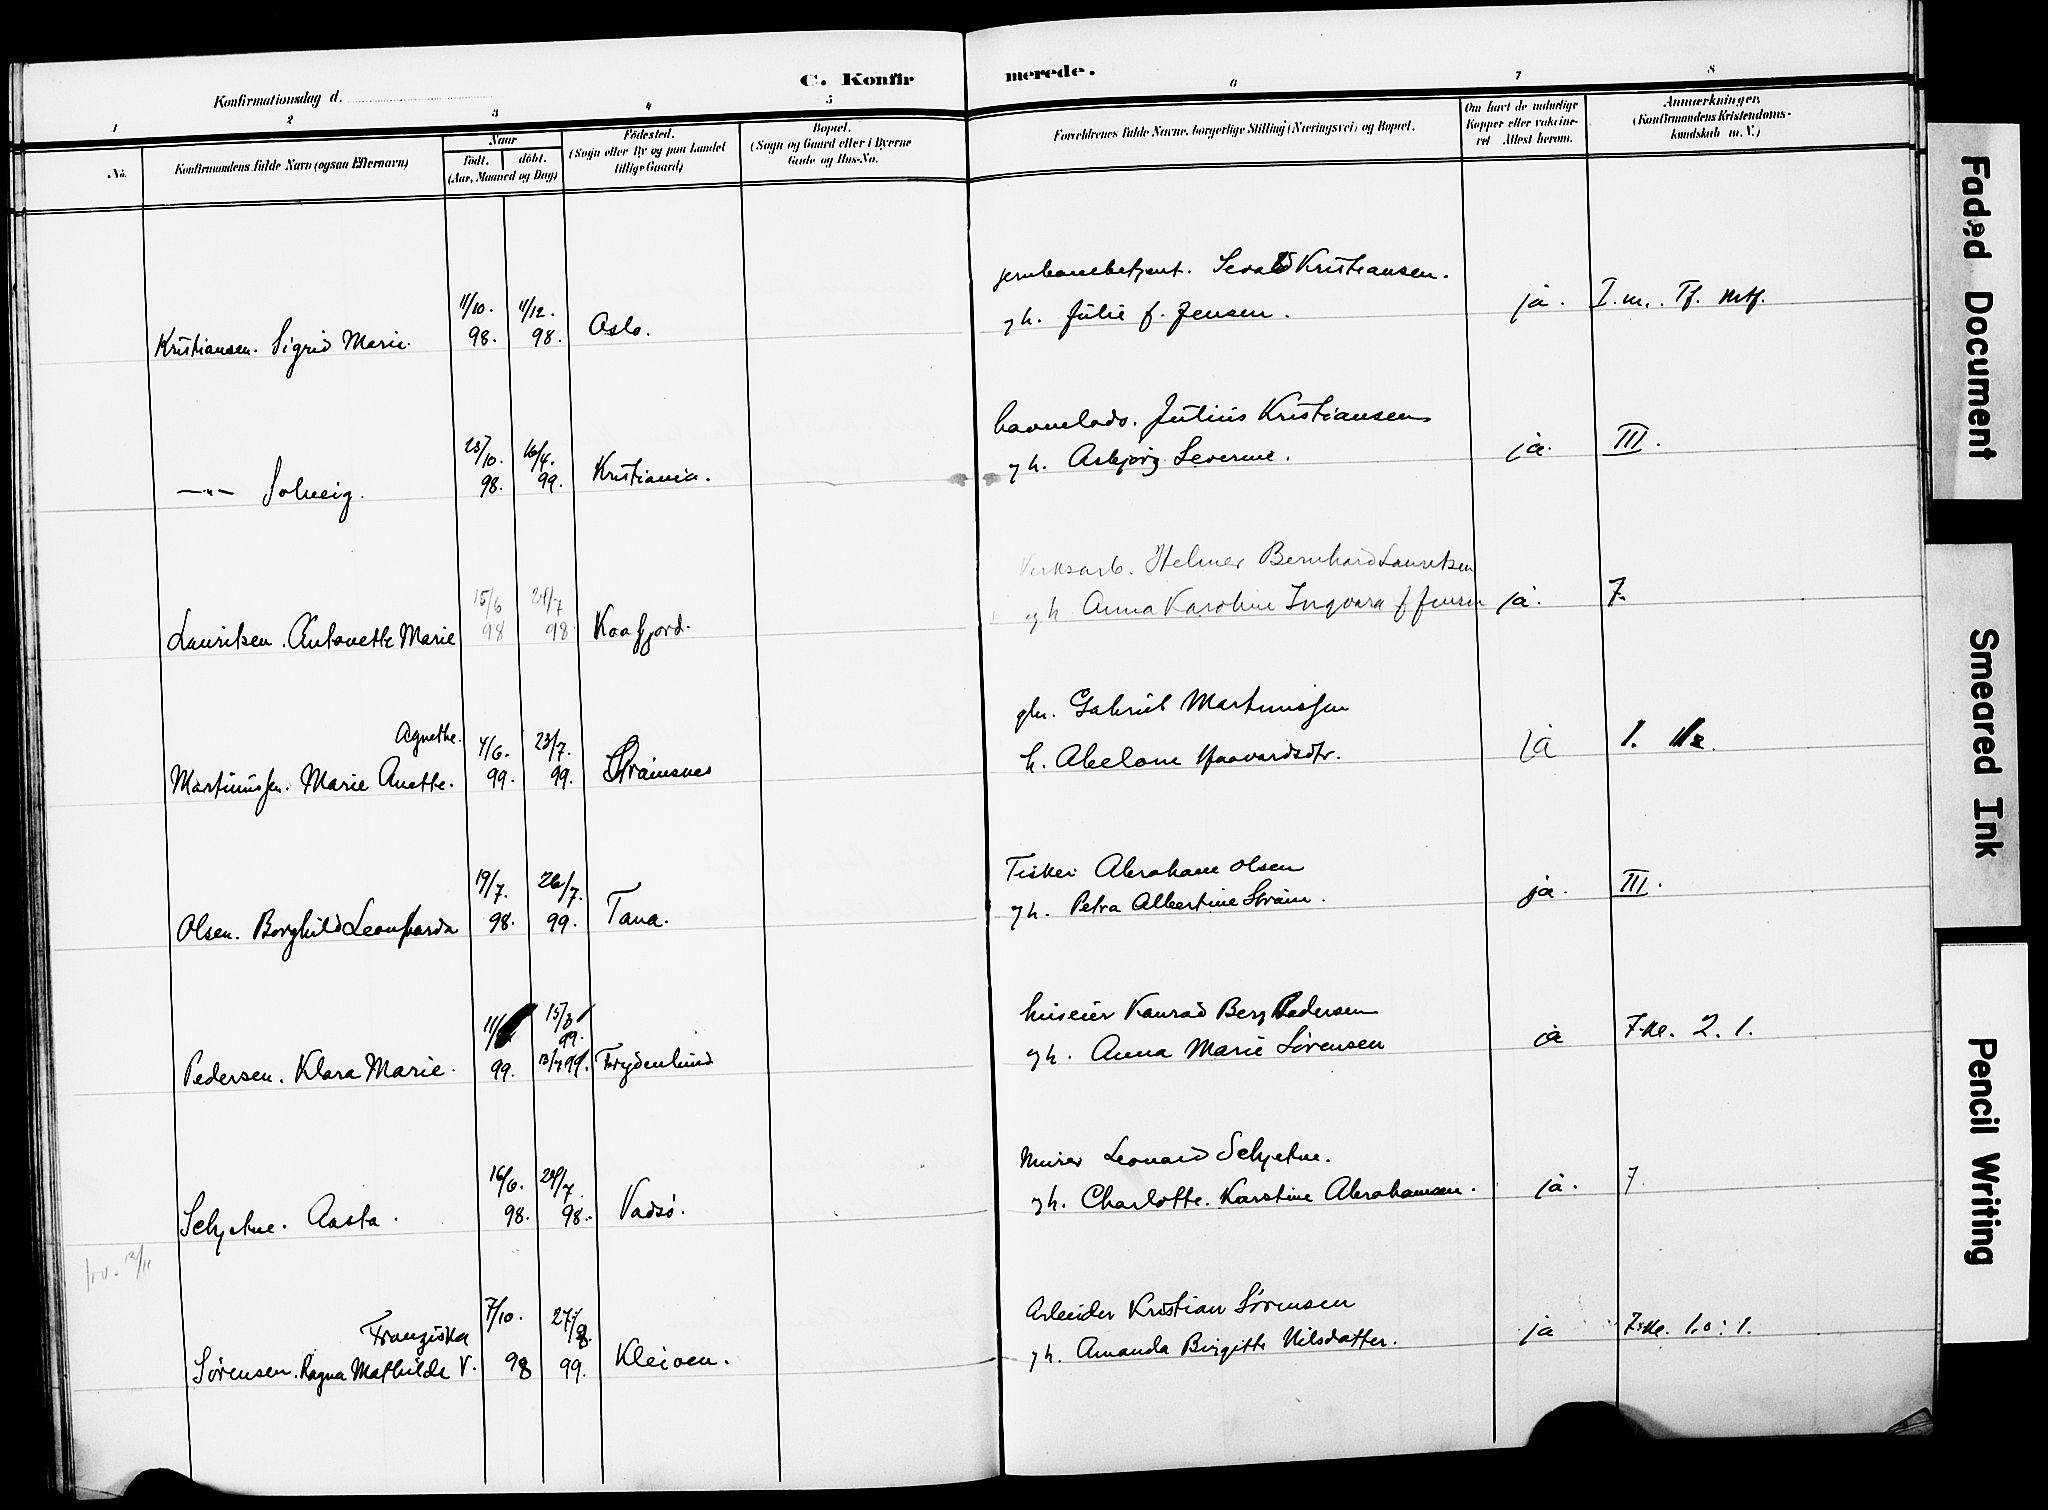 C. Konfirmerede.
Konfirmationsdag d.
1 2 3 4 5 6 7 8
No.
Konfirmandens fulde Navn (ogsaa Efternavn)
Naar
født. døbt.
(Aar, Maaned og Dag)
Fødested.
(Sogn eller By og paa Landet
tillige Gaard)
Bopæl.
(Sogn og Gaard eller i Byerne
Gade og Hus-No.
Forældrenes fulde Navne, borgerlige Stilling (Næringsvei) og Bopæl.
Om havt de naturlige
Kopper eller vaccine-
ret Attest herom.
Anmærkninger.
(Konfirmandens Kristendoms-
kundskab m. V.)
jernbanebetjent. Sevald Kristiansen.
Kristiansen. Sigrid Marie. 11/10. 98. 11/12. 98. Oslo. gh. Julie f. Jensen. ja. I. m.. Tf. mtf.
havnelods. Julius Kristiansen
—"— Solveig. 23/10. 98. 16/4. 99. Kristiania. gh. Asbjørg Severine. ja. III.
Verksarb. Helmer Bernhard Lauritsen
Lauritsen. Antonette Marie 15/6 98 24/7 98 Kaafjord. gh. Anna Karoline Ingvara f Jensen ja. 7.
gbr. Gabriel Martinussen
Agnethe.
Martinussen. Marie Anette. 4/6. 99. 23/7. 99. Strømsnes h. Abelone Haavardsdtr. ja 1.
Fisker Abraham Olsen
Olsen. Borghild Leonharda 19/7. 98. 26/7. 99. Tana. gh. Petra Albertine Strøm. ja. III.
huseier Konrad Berg Pedersen
Pedersen. Klara Marie. 11/ 99. 15/8 99. 13/7 99. Frydenlund gh. Anna Marie Sørensen ja 7. ke. 2. 1.
Murer Leonard Schjetne.
Schjetne. Aasta. 16/6. 98. 24/7. 98. Vadsø. gh. Charlotte. Karstine Abrahamsen. ja. 7
12/11
Arbeider Kristian Sørensen
Franziska
Sørensen. Ragna Mathilde V. 7/10. 98 27/8. 99. Kleiven. gh. Amanda Birgitte Nilsdatter. ja 7. ke. 1.0:1.
Faded Document
Smeared Ink
Pencil Writing